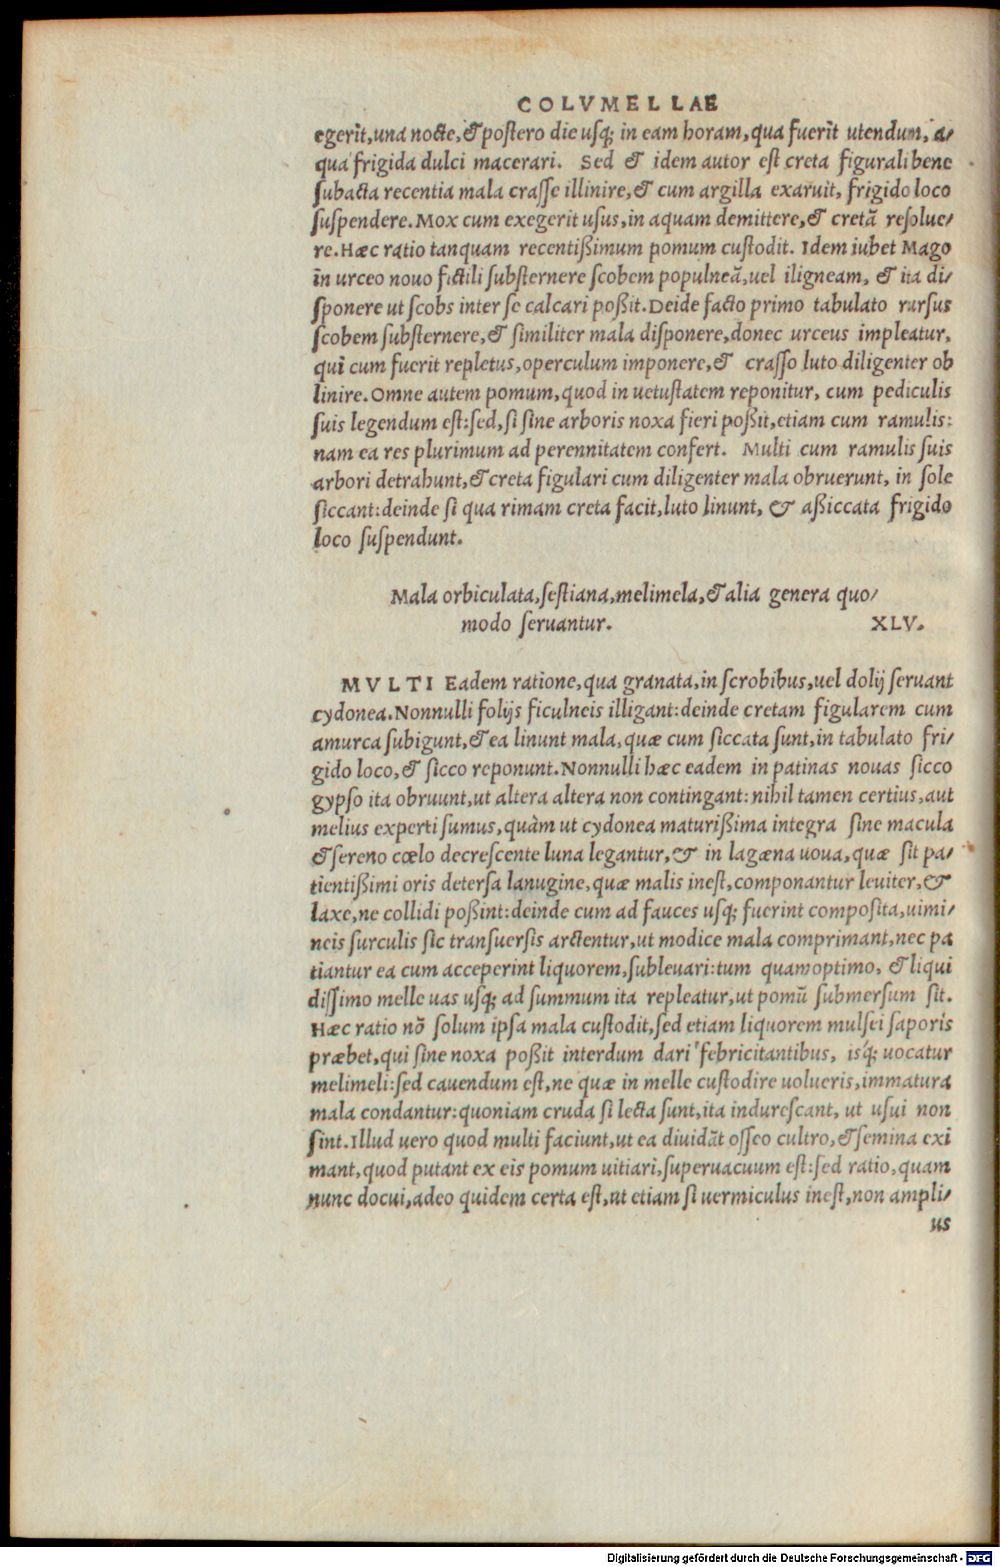 COLVMELLAE
egerit,una nocte,& postero die usq; in eam horam,qua fuerit utendum, a/
qua frigida dulci macerari. Sed & idem autor est creta figurali bene
subacta recentia mala crasse illinire,& cum argilla exaruit, frigido loco
suspendere.Mox cum exegerit usus,in aquam demittere,& cretā resolue/
re.Hæc ratio tanquam recentißimum pomum custodit. Idem iubet Mago
in urceo nouo fictili substernere scobem populneā,uel iligneam, & ita di/
sponere ut scobs inter se calcari poßit.Deide facto primo tabulato rursus
scobem substernere,& similiter mala disponere,donec urceus impleatur,
qui cum fuerit repletus,operculum imponere,& crasso luto diligenter ob
linire.Omne autem pomum,quod in uetustatem reponitur, cum pediculis
suis legendum est:sed,si sine arboris noxa fieri poßit,etiam cum ramulis:
nam ea res plurimum ad perennitatem confert. Multi cum ramulis suis
arbori detrahunt,& creta figulari cum diligenter mala obruerunt, in sole
siccant:deinde si qua rimam creta facit,luto linunt, & aßiccata frigido
loco suspendunt.
Mala orbiculata,sestiana,melimela,& alia genera quo/
modo seruantur. XLV.
MVLTI Eadem ratione,qua granata,in scrobibus,uel dolij seruant
cydonea.Nonnulli folijs ficulneis illigant:deinde cretam figularem cum
amurca subigunt,& ea linunt mala,quæ cum siccata sunt,in tabulato fri/
gido loco,& sicco reponunt.Nonnulli hæc eadem in patinas nouas sicco
gypso ita obruunt,ut altera altera non contingant:nihil tamen certius,aut
melius experti sumus,quàm ut cydonea maturißima integra sine macula
& sereno cœlo decrescente luna legantur,& in lagæna uoua,quæ sit pa/
tientißimi oris detersa lanugine,quæ malis inest,componantur leuiter,&
laxe,ne collidi poßint:deinde cum ad fauces usq; fuerint composita,uimi/
neis surculis sic transuersis arctentur,ut modice mala comprimant,nec pa
tiantur ea cum acceperint liquorem,subleuari:tum quamoptimo, & liqui
dissimo melle uas usq; ad summum ita repleatur,ut pomū submersum sit.
Hæc ratio nō solum ipsa mala custodit,sed etiam liquorem mulsei saporis
præbet,qui sine noxa poßit interdum dari febricitantibus, isq; uocatur
melimeli:sed cauendum est,ne quæ in melle custodire uolueris,immatura
mala condantur:quoniam cruda si lecta sunt,ita indurescant, ut usui non
sint.Illud uero quod multi faciunt,ut ea diuidāt osseo cultro,& semina exi
mant,quod putant ex eis pomum uitiari,superuacuum est:sed ratio,quam
nunc docui,adeo quidem certa est,ut etiam si uermiculus inest,non ampli/
us
Digitalisierung gefördert durch die Deutsche Forschungsgemeinschaft - DFG